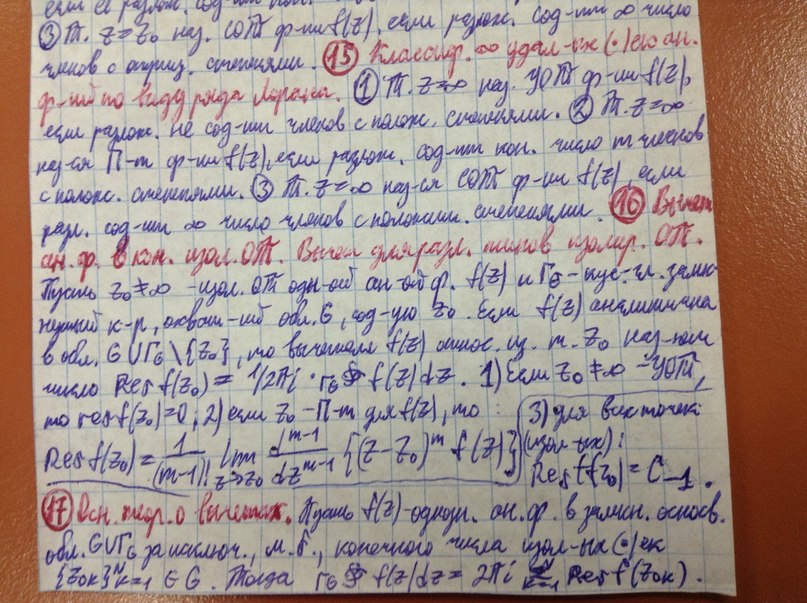 ③ Т. z=z₀ наз. СОТ ф-ии f(z), если разлож. сод-ит ∞ число
членов с отриц. степенями. ⑮ Классиф. ∞ удал-ых (•)ек ан.
ф-ий по виду ряда Лорана. ① Т. z=∞ наз. УОТ ф-ии f(z),
если разлож. не сод-ит членов с полож. степенями. ② Т. z=∞
наз-ся П-m ф-ии f(z), если разлож. сод-ит кон. число m членов
с полож. степенями. ③ Т. z=∞ наз-ся СОТ ф-ии f(z), если
разл. сод-ит ∞ число членов с положит. степенями. ⑯ Вычет
ан. ф. в кон. изол. ОТ. Вычет для разл. типов изолир. ОТ.
Пусть z₀≠∞ - изол. ОТ одн-ой ан-ой ф. f(z) и Г_G - кус.-гл. замк-
нутый к-р, охват-ий обл. G, сод-ую z₀. Если f(z) аналитична
в обл. G∪Г_G\{z₀}, то вычетом f(z) относ. из. т. z₀ наз-ют
число Res f(z₀) = 1/2πi · Г_G∮ f(z)dz. 1) Если z₀≠∞ - УОТ,
то res f(z₀)=0; 2) если z₀ - П-m для f(z), то:
Res f(z₀) = 1/(m-1)! lim z→z₀ d^(m-1)/dz^(m-1) {(z-z₀)^m f(z)}
3) для всех точек
(изол-ых):
Res f(z₀) = C₋₁.
⑰ Осн. теор. о вычетах. Пусть f(z) - однозн. ан. ф. в замкн. односв.
обл. G∪Г_G за исключ., м.б., конечного числа изол-ых (•)ек
{z₀ₖ}ᴺₖ₌₁ ∈ G. Тогда Г_G∮ f(z)dz = 2πi Σᴺₖ₌₁ Res f(z₀ₖ).